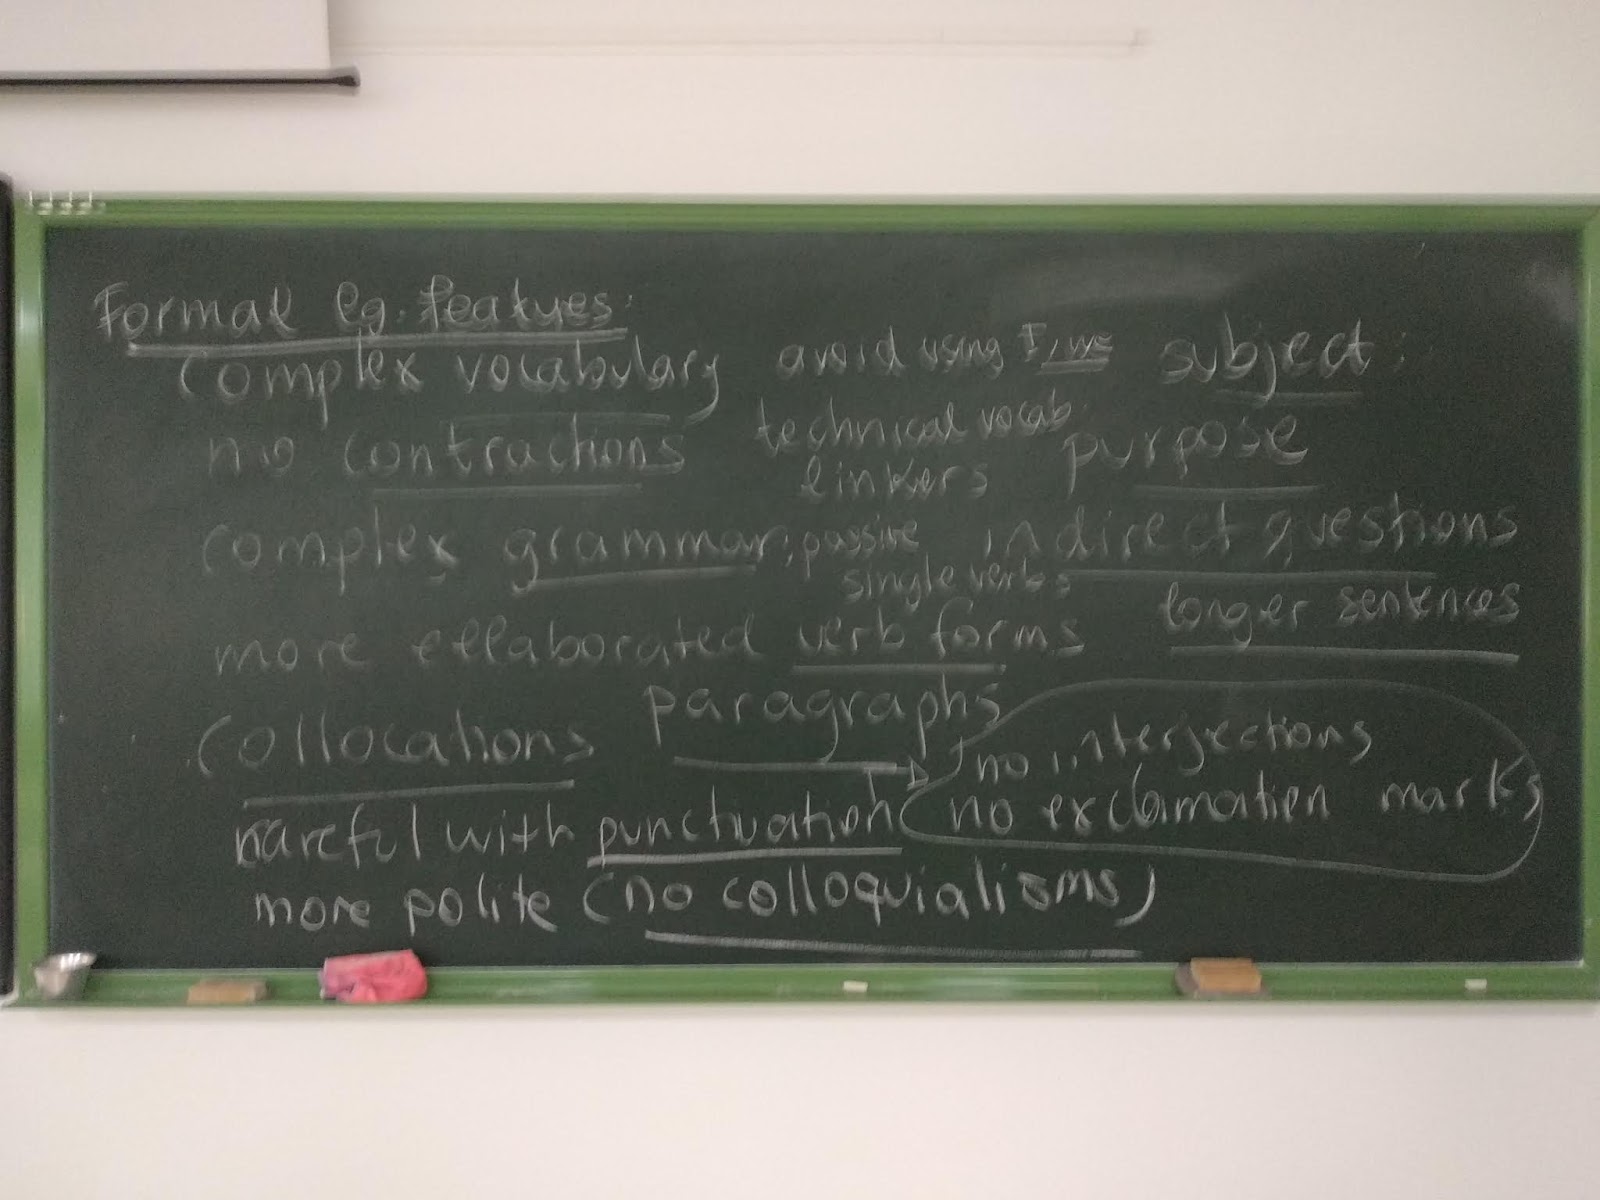 Formal eg. features:
complex vocabulary avoid using I, we subject:
no contractions technical vocab. purpose
linkers
complex grammar: passive indirect questions
single verbs
more ellaborated verb forms longer sentences
collocations paragraphs
no interjections
careful with punctuation no exclamation marks
more polite (no colloquialisms)